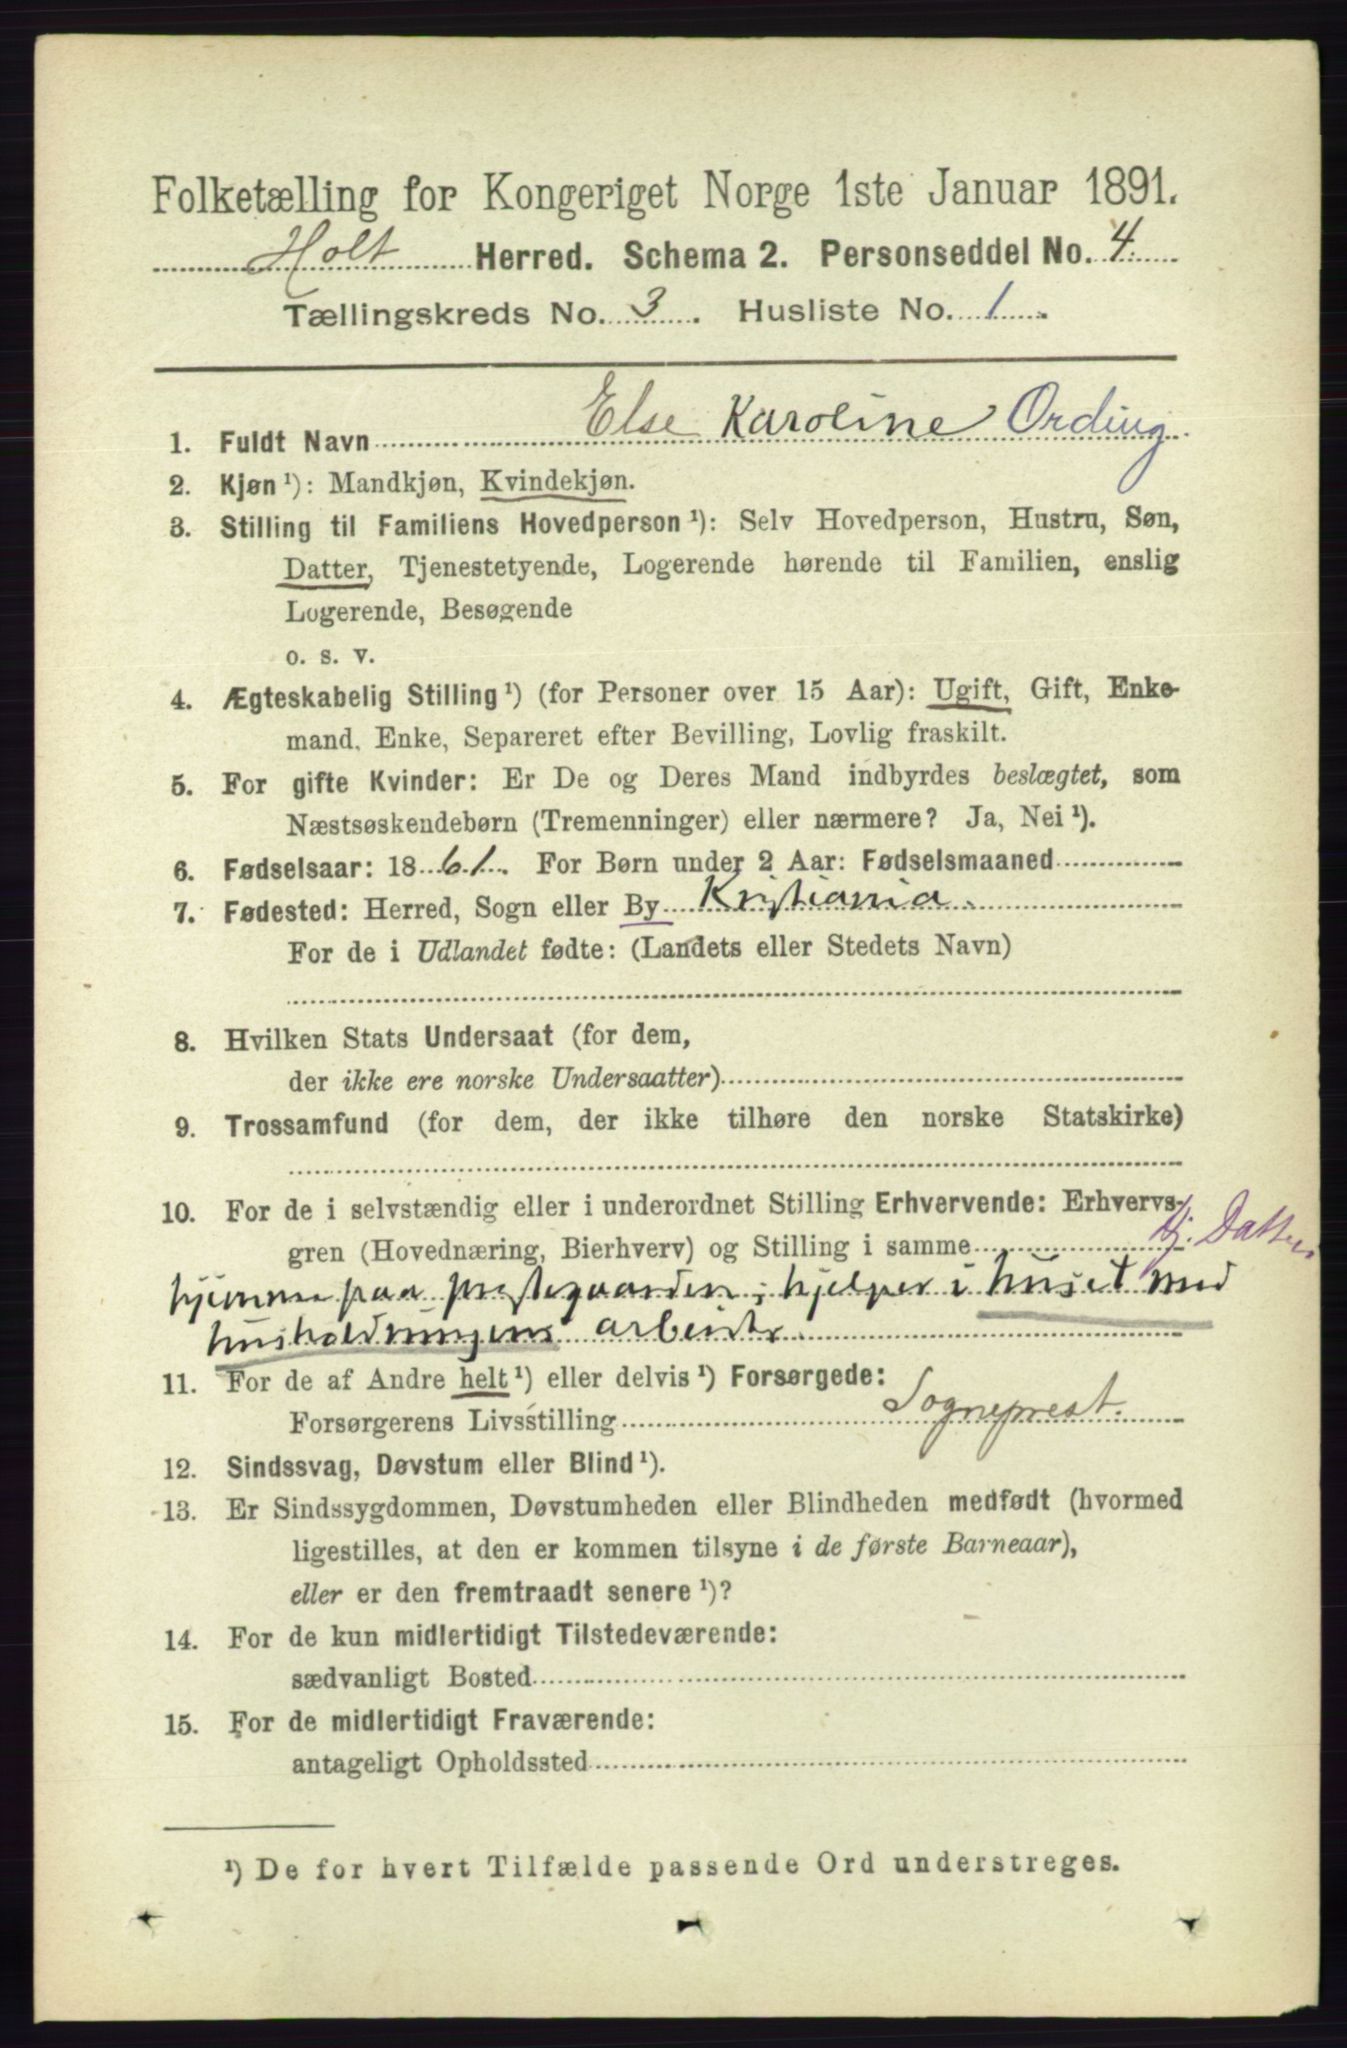 Folketælling for Kongeriget Norge 1ste Januar 1891.
Holt Herred. Schema 2. Personseddel No. 4.
Tællingskreds No. 3. Husliste No. 1.
1. Fuldt Navn Else Karoline Ording.
2. Kjøn¹): Mandkjøn, Kvindekjøn.
3. Stilling til Familiens Hovedperson¹): Selv Hovedperson, Hustru, Søn,
Datter, Tjenestetyende, Logerende hørende til Familien, enslig
Logerende, Besøgende
o. s. v.
4. Ægteskabelig Stilling¹) (for Personer over 15 Aar): Ugift, Gift, Enke-
mand, Enke, Separeret efter Bevilling, Lovlig fraskilt.
5. For gifte Kvinder: Er De og Deres Mand indbyrdes beslægtet, som
Næstsøskendebørn (Tremenninger) eller nærmere? Ja, Nei¹).
6. Fødselsaar: 1861. For Børn under 2 Aar: Fødselsmaaned
7. Fødested: Herred, Sogn eller By Kristiania.
For de i Udlandet fødte: (Landets eller Stedets Navn)
8. Hvilken Stats Undersaat (for dem,
der ikke ere norske Undersaatter)
9. Trossamfund (for dem, der ikke tilhøre den norske Statskirke)
10. For de i selvstændig eller i underordnet Stilling Erhvervende: Erhvervs-
gren (Hovednæring, Bierhverv) og Stilling i samme hj. Datter
hjemme paa prestegaarden; hjelper i huset med
husholdningens arbeide.
11. For de af Andre helt¹) eller delvis¹) Forsørgede:
Forsørgerens Livsstilling Sogneprest.
12. Sindssvag, Døvstum eller Blind¹).
13. Er Sindssygdommen, Døvstumheden eller Blindheden medfødt (hvormed
ligestilles, at den er kommen tilsyne i de første Barneaar),
eller er den fremtraadt senere¹)?
14. For de kun midlertidigt Tilstedeværende:
sædvanligt Bosted
15. For de midlertidigt Fraværende:
antageligt Opholdssted
¹) De for hvert Tilfælde passende Ord understreges.